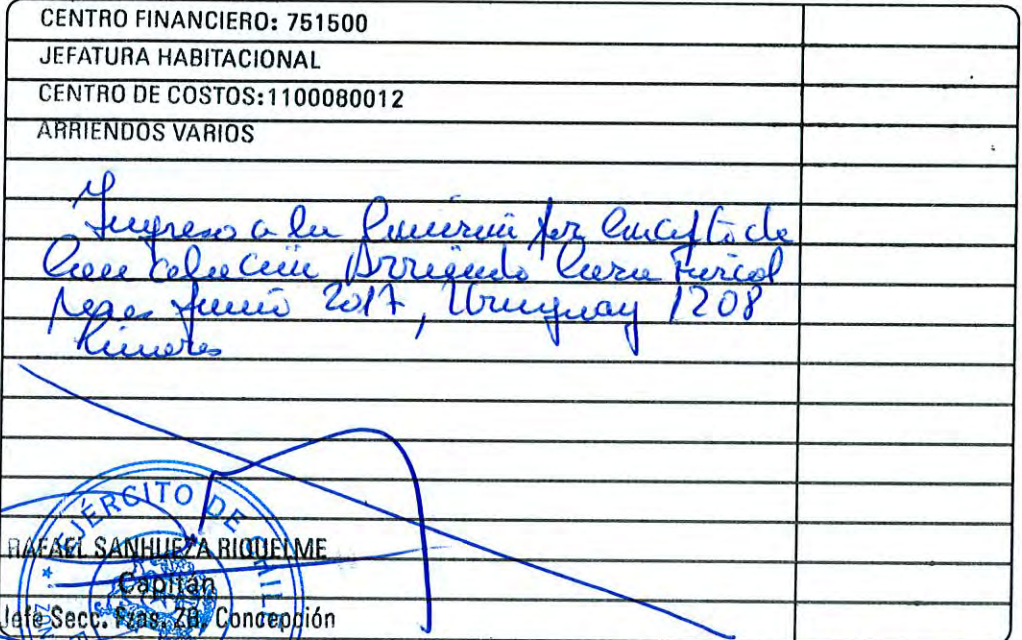 CENTRO FINANCIERO: 751500
JEFATURA HABITACIONAL
CENTRO DE COSTOS:1100080012
ARRIENDOS VARIOS
Ingreso a la por Concepto de
Arriendo Fiscal
Junio 2017, Uruguay 1208
EJÉRCITO DE CHIL
RAFAEL SANHUEZA RIQUELME
Capitán
Jefe Secc. Fzas. ZB, Concepción